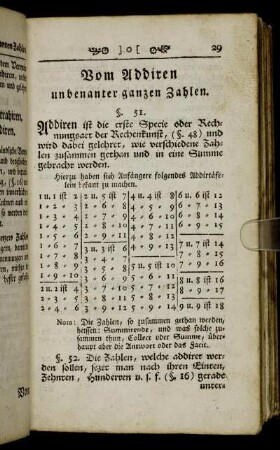 ]o[ 29
Vom Addiren
unbenanter ganzen Zahlen.
§. 51.
Addiren ist die erste Specie oder Rech-
nungsart der Rechenkunst, (§. 48) und
wird dabei gelehret, wie verschiedene Zah-
len zusammen gethan und in eine Summe
gebracht werden.
Hierzu haben sich Anfängere folgendes Addirtäfe-
lein bekant zu machen.
1 u. 1 ist 2 | 2 u. 7 ist 9 | 4 u. 4 ist 8 | 6 u. 6 ist 12
1 - 2 - 3 | 2 - 8 - 10 | 4 - 5 - 9 | 6 - 7 - 13
1 - 3 - 4 | 2 - 9 - 11 | 4 - 6 - 10 | 6 - 8 - 14
1 - 4 - 5 | 4 - 7 - 11 | 6 - 9 - 15
1 - 5 - 6 | 3 u. 3 ist 6 | 4 - 8 - 12
1 - 6 - 7 | 3 - 4 - 7 | 4 - 9 - 13 | 7 u. 7 ist 14
1 - 7 - 8 | 3 - 5 - 8 | 7 - 8 - 15
1 - 8 - 9 | 3 - 6 - 9 | 5 u. 5 ist 10 | 7 - 9 - 16
1 - 9 - 10 | 3 - 7 - 10 | 5 - 6 - 11
2 u. 2 ist 4 | 3 - 8 - 11 | 5 - 7 - 12 | 8 u. 8 ist 16
2 - 3 - 5 | 3 - 9 - 12 | 5 - 8 - 13 | 8 - 9 - 17
2 - 4 - 6 | 5 - 9 - 14 | 9 u. 9 ist 18
Nota: Die Zahlen, so zusammen gethan werden,
heissen: Summirende, und was solche zu-
sammen thun, Collect oder Summe, über-
haupt aber die Antwort oder das Facit.
§. 52. Die Zahlen, welche addiret wer-
den sollen, sezet man nach ihren Einren,
Zehnren, Hunderren u. s. f. (§. 16) gerade
unter-